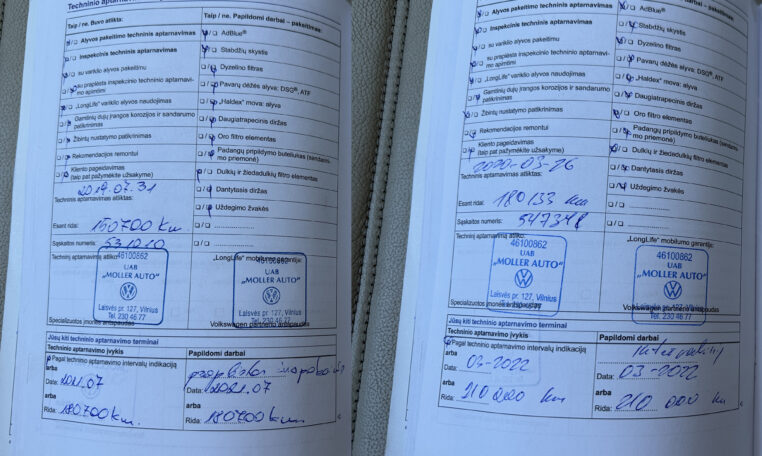 Techninio aptarnavimo
Taip / ne. Buvo atlikta:
Taip / ne. Papildomi darbai – pakeitimas:
Alyvos pakeitimo techninis aptarnavimas
AdBlue®
Inspekcinis techninis aptarnavimas
Stabdžių skystis
su variklio alyvos pakeitimu
Dyzelino filtras
su praplėsta inspekcinio techninio aptarnavi-
mo apimtimi
Pavarų dėžės alyva: DSG®, ATF
„LongLife“ variklio alyvos naudojimas
„Haldex“ mova: alyva
Gamtinių dujų įrangos korozijos ir sandarumo
patikrinimas
Daugiatrapecinis diržas
Žibintų nustatymo patikrinimas
Oro filtro elementas
Rekomendacijos remontui
Padangų pripildymo buteliukas (sandarini-
mo priemonė)
Kliento pageidavimas
(taip pat pažymėkite užsakyme)
Dulkių ir žiedadulkių filtro elementas
2019.07.31
Techninis aptarnavimas atliktas:
Dantytasis diržas
Uždegimo žvakės
Esant ridai: 150700 km
Sąskaitos numeris:
Techninį aptarnavimą atliko:
„LongLife“ mobilumo garantija:
46100862
UAB
„MOLLER AUTO“
Laisvės pr. 127, Vilnius
Tel. 230 46 77
46100862
UAB
„MOLLER AUTO“
Laisvės pr. 127, Vilnius
Tel. 230 46 77
Specializuotos įmonės antspaudas
Volkswagen partnerio antspaudas
Jūsų kiti techninio aptarnavimo terminai
Techninio aptarnavimo įvykis
Papildomi darbai
Pagal techninio aptarnavimo intervalų indikaciją
arba
Data: 2021.07
Data: 2021.07
arba
arba
Rida: 180700 km.
Rida: 180700 km.
AdBlue®
Inspekcinis techninis aptarnavimas
Stabdžių skystis
su variklio alyvos pakeitimu
Dyzelino filtras
su praplėsta inspekcinio techninio aptarnavi-
mo apimtimi
Pavarų dėžės alyva: DSG®, ATF
„LongLife“ variklio alyvos naudojimas
„Haldex“ mova: alyva
Gamtinių dujų įrangos korozijos ir sandarumo
patikrinimas
Daugiatrapecinis diržas
Žibintų nustatymo patikrinimas
Oro filtro elementas
Rekomendacijos remontui
Padangų pripildymo buteliukas (sandarini-
mo priemonė)
Kliento pageidavimas
(taip pat pažymėkite užsakyme)
Dulkių ir žiedadulkių filtro elementas
2020-03-26
Techninis aptarnavimas atliktas:
Dantytasis diržas
Esant ridai: 180133 km
Uždegimo žvakės
Sąskaitos numeris: 547348
Techninį aptarnavimą atliko:
„LongLife“ mobilumo garantija:
46100862
UAB
„MOLLER AUTO“
Laisvės pr. 127, Vilnius
Tel. 230 46 77
46100862
UAB
„MOLLER AUTO“
Laisvės pr. 127, Vilnius
Tel. 230 46 77
Specializuotos įmonės antspaudas
Volkswagen partnerio antspaudas
Jūsų kiti techninio aptarnavimo terminai
Techninio aptarnavimo įvykis
Papildomi darbai
Pagal techninio aptarnavimo intervalų indikaciją
arba
Data: 03-2022
Data: 03-2022
arba
arba
Rida: 210 000 km
Rida: 210 000 km